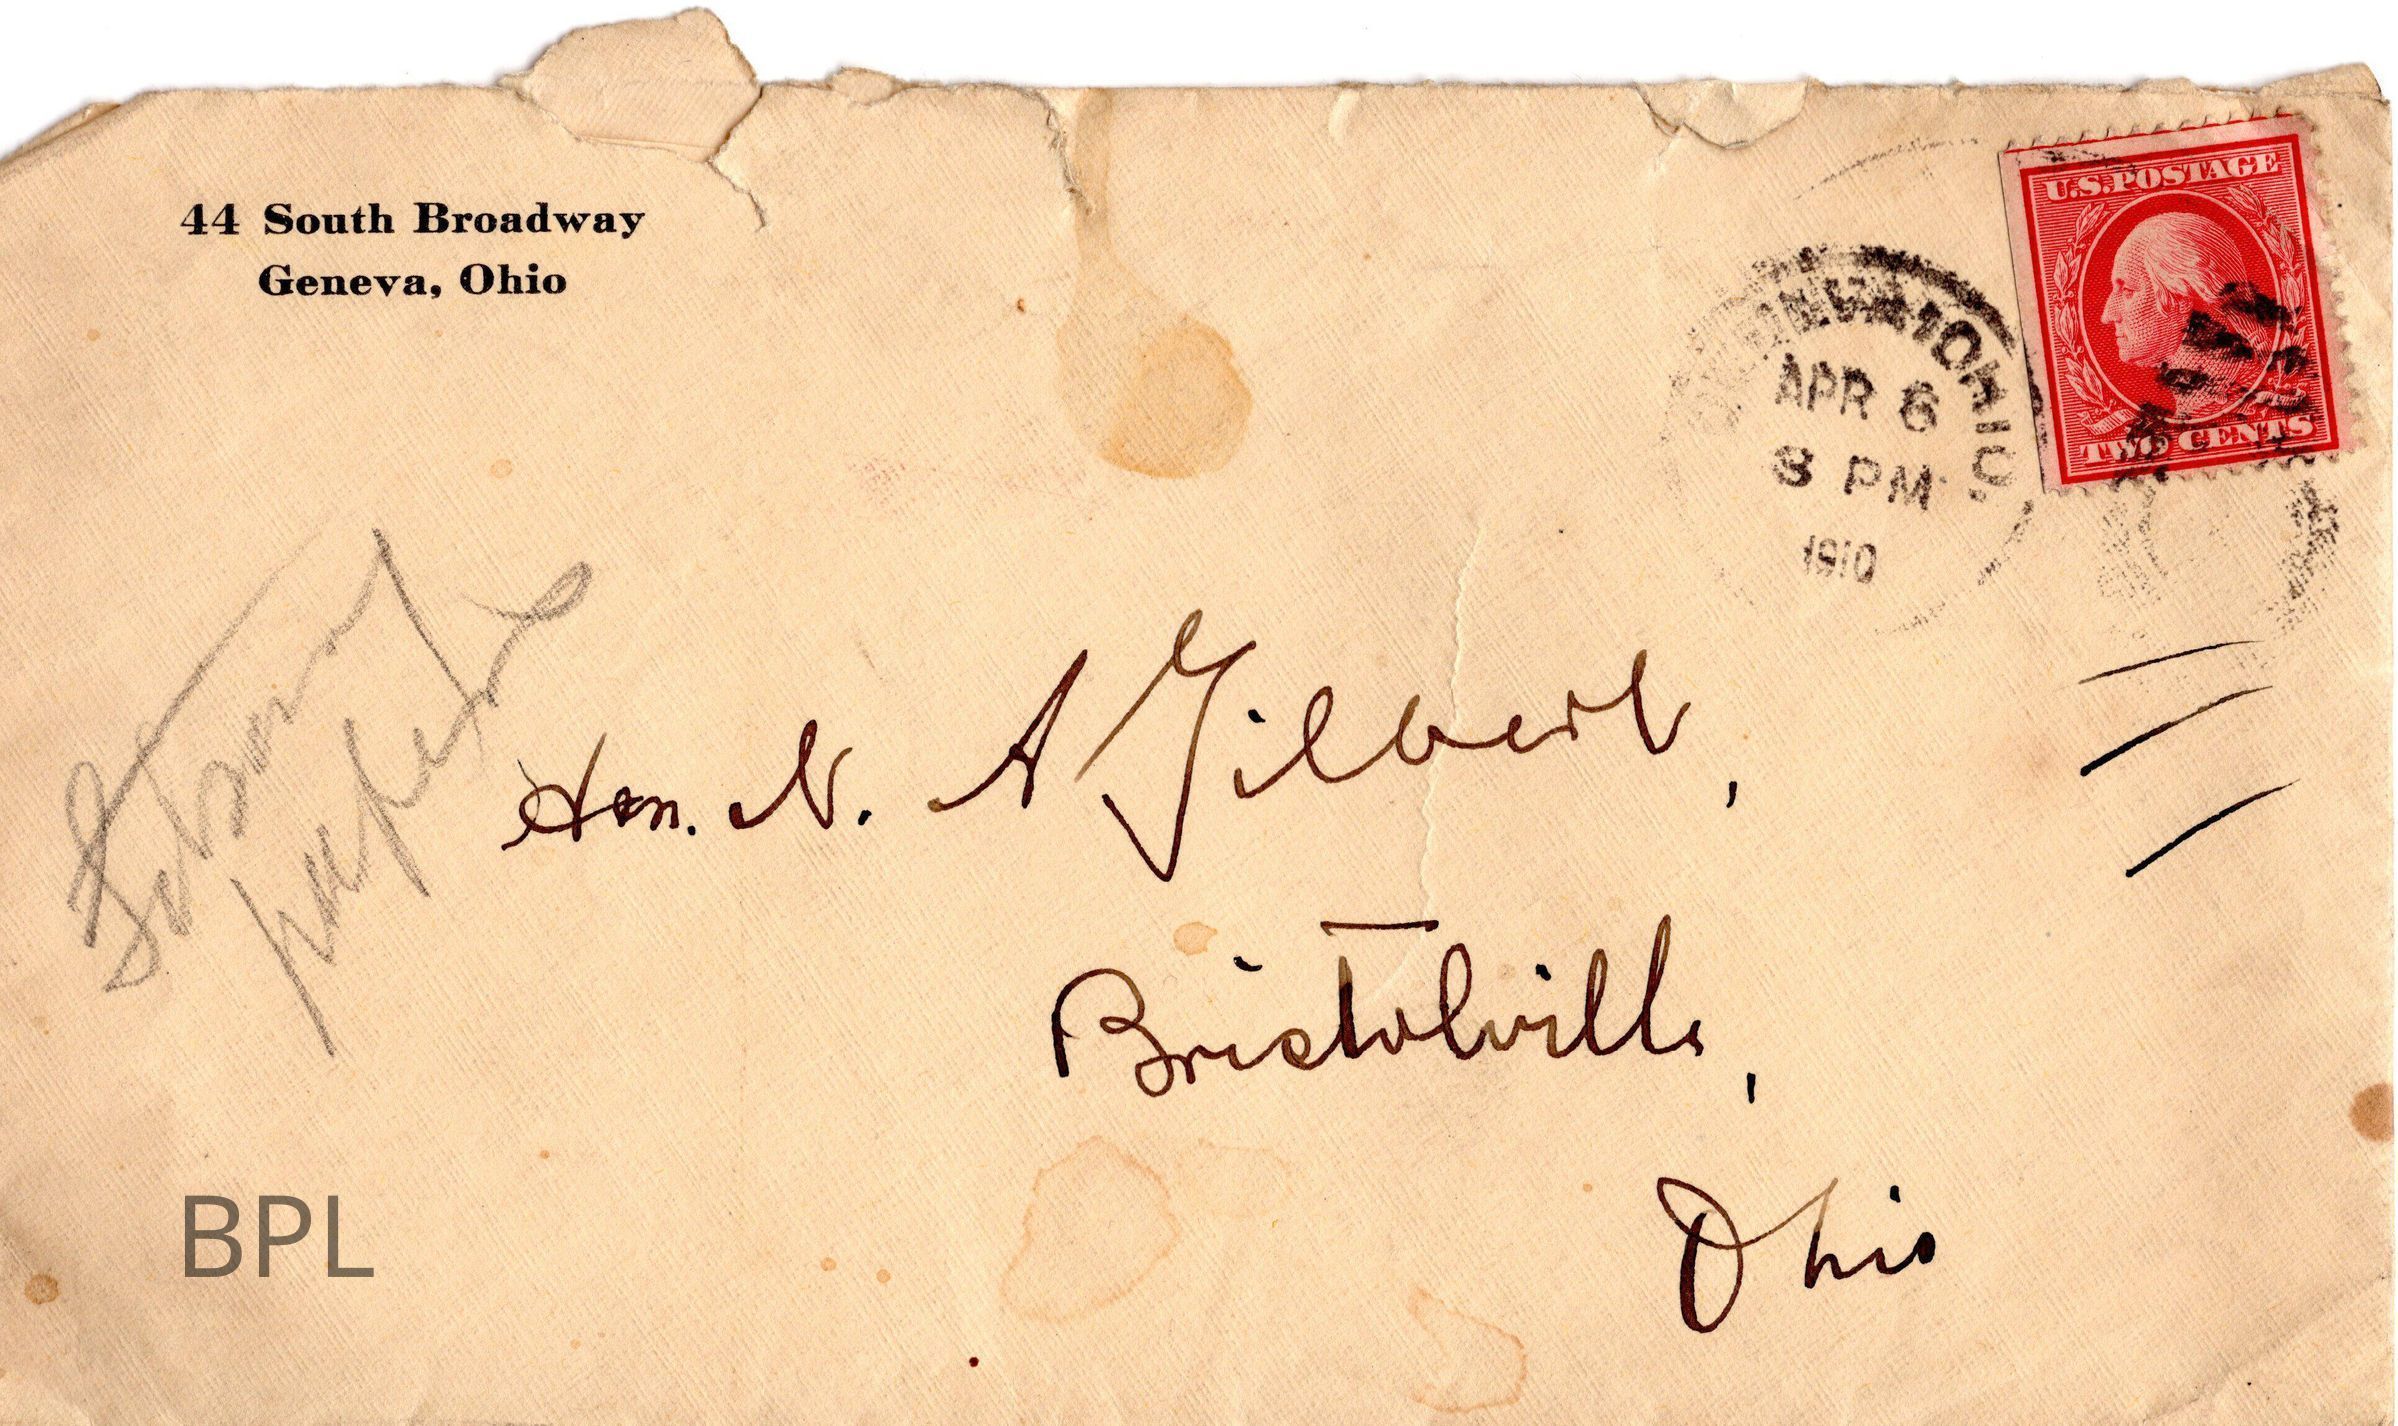 44 South Broadway
Geneva, Ohio
U.S. POSTAGE
TWO CENTS
GENEVA, OHIO.
APR 6
8 PM
1910
Hon. N. A Gilbert,
Bristolville,
Ohio
BPL